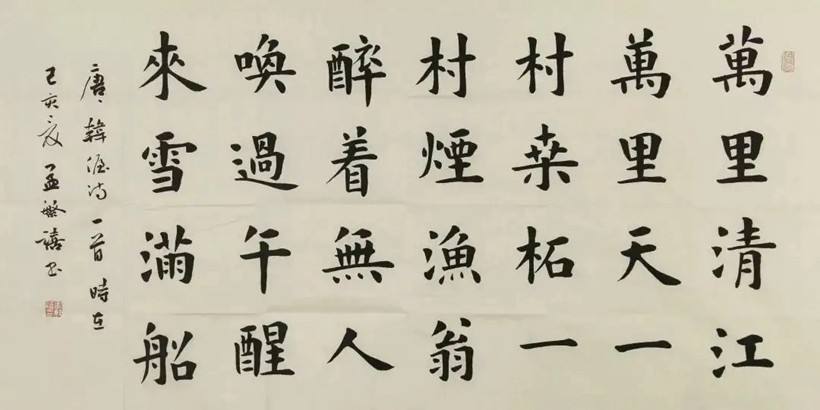 萬里清江
萬里天一
村桒柘一
村煙漁翁
醉着無人
喚過午醒
來雪滿船
唐、韓偓詩一首時在
己亥夏孟繁禧書